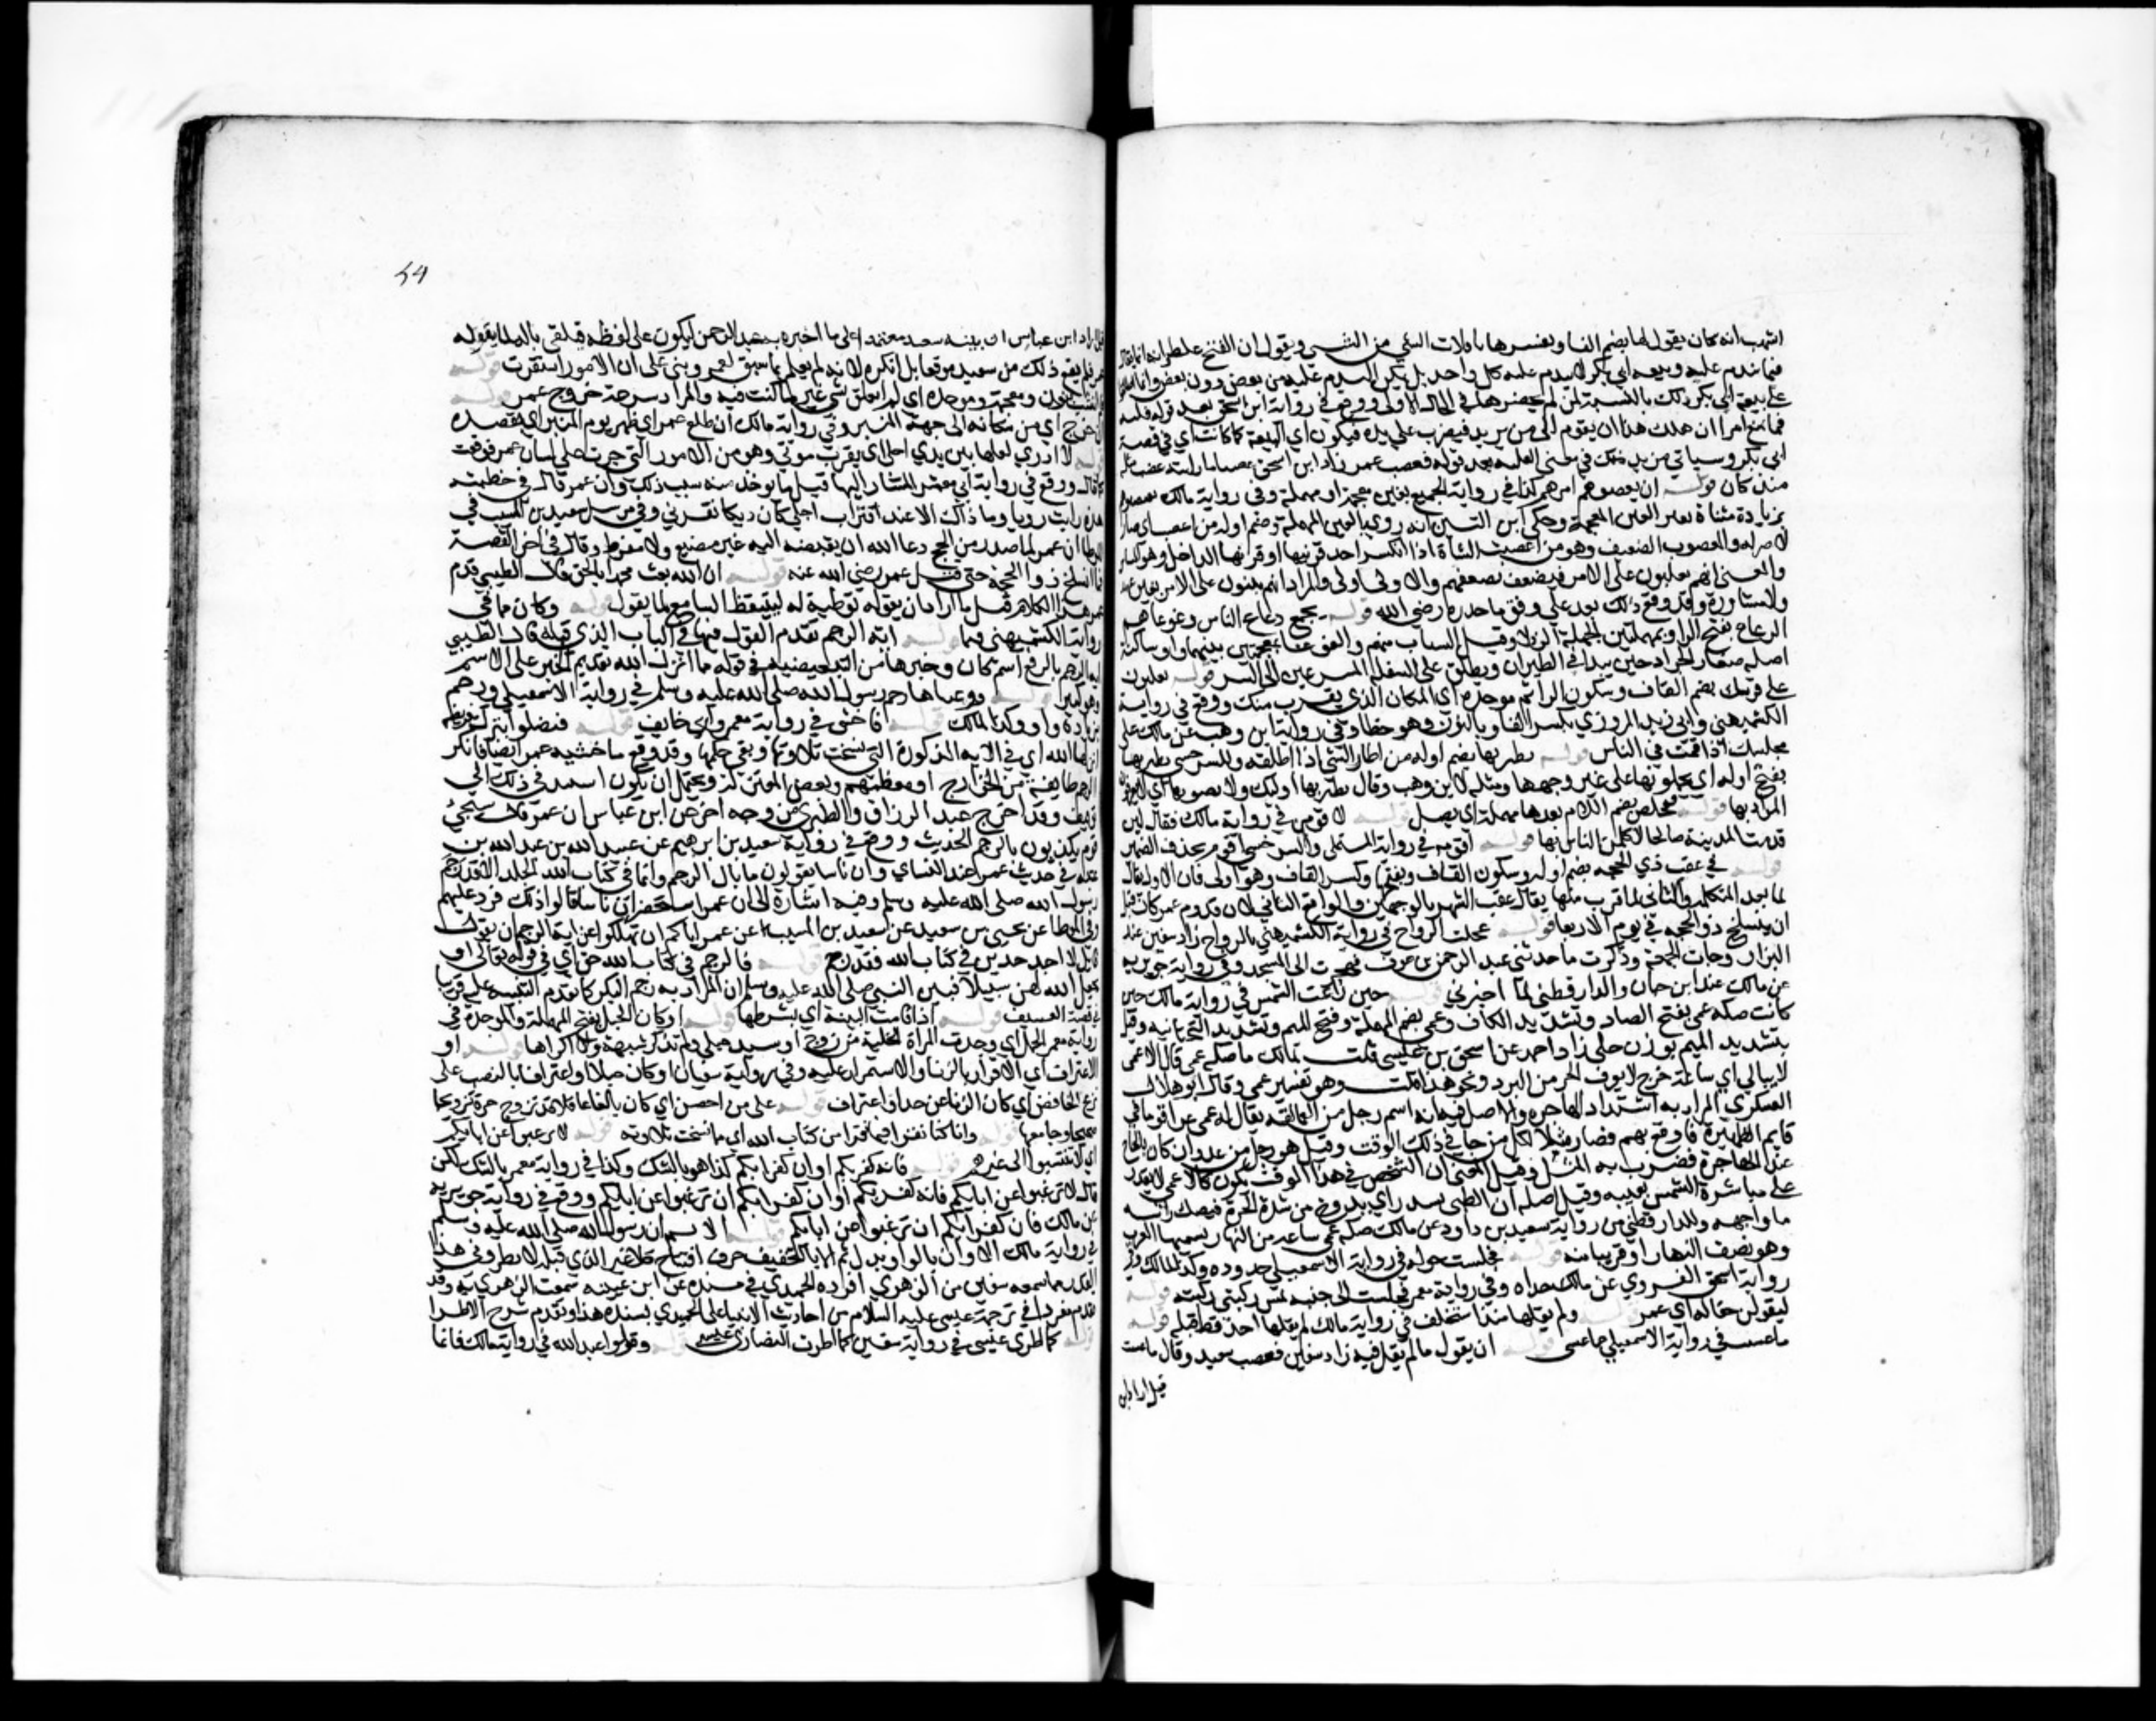 اشهب انه كان يقول لها بضم الفا ويفسرها بانفلات الشي من الشي ويقول ان الفتح غلط وانه انما يقال
فيما يندم عليه وبيعة ابي بكر لا يندم عليه كل واحد بل يكن الندم عليه من بعض دون بعض وانما
على بيعة ابي بكر ذلك بالنسبة لمن لم يحضرها في الحال الاولى ووقع في رواية ابن اسحق بعد قوله فلتة
فما يمنع امرا ان هلك هذا ان يقوم الى من يريد فيضرب على يده فيكون اي البيعة كما كانت اي في قصة
ابي بكر وسياتي مزيد لذلك في معنى الفلتة بعد قوله فغضب عمر زاد ابن اسحق غضبا ما رايته غضب مثله
منذ كان قوله ان يغصبوهم امرهم كذا في رواية الجميع بغين معجمة وصاد مهملة وفي رواية مالك
بزيادة مثناة بعد الغين المعجمة وحكى ابن التين انه روي بالعين المهملة وضم اوله من اعضب اي صار
لا ناصر له والمعضوب الضعيف وهو من اعضبت الشاة اذا انكسر احد قرنيها او قرنها الداخل وهو المشاش
والمعنى انهم يغلبون على الامر فيضعف لضعفهم والاول اولى والمراد انهم يثبون على الامر بغير عهد
ولا مشاورة وقد وقع ذلك بعد علي وفق ما حذره رضي الله قوله يجمع رعاع الناس وغوغاهم
الرعاع بفتح الرا وبمهملتين الجهلة الرذلا وقيل الشباب منهم والغوغا بمعجمتين بينهما واو ساكنة
اصله صغار الجراد حين يبدا في الطيران ويطلق على السفلة المسرعين الى الشر قوله يغلبون
على قربك بضم القاف وسكون الرا ثم موحدة اي المكان الذي يقرب منك ووقع في رواية
الكشميهني وابي زيد المروزي بكسر القاف وبالنون وهو خطا وفي رواية ابن وهب عن مالك على
مجلسك اذا قمت في الناس قوله يطيرها بضم اوله من اطار الشي اذا اطلقه وللسرخسي يطيربها
بفتح اوله اي يحملونها على غير وجهها ومثله لابن وهب وقال يطيربها اوليك ولا يعونها اي لا يعرفون
المراد بها قوله فتخلص بضم اللام بعدها مهملة اي تصل قوله لاقومن في رواية مالك فقال لين
قدمت المدينة صالحا لاكلمن الناس بها قوله اقومه في رواية المستملي والسرخسي اقوم بحذف الضمير
قوله في عقب ذي الحجة بضم اوله وسكون القاف وبفتحها وكسر القاف وهو اولى فان الاول يقال
لما بعد التكملة والثاني لما قرب منها يقال عقب الشهر بالوجهين والواقع الثاني لان قدوم عمر كان قبل
ان ينسلخ ذو الحجة في يوم الاربعا قوله عجلت الرواح في رواية الكشميهني بالرواح زاد سفين عند
البزار وجات الجمعة وذكرت ما حدثني عبد الرحمن بن عوف فهجرت الى المسجد وفي رواية جويرية
عن مالك عند ابن حبان والدارقطني لما اخبرني قوله حين زاغت الشمس في رواية مالك حين
كانت صكة عمي بفتح الصاد وتشديد الكاف وعمي بضم المهملة وفتح الميم وتشديد التحتانية وقيل
بتشديد الميم بوزن حبلى زاد احمد عن اسحق بن عيسى قلت لمالك ما صكة عمي قال الاعمى
لا يبالي اي ساعة خرج لا يعرف الحر من البرد ونحو هذا قلت وهو تفسير عمي وقال ابو هلال
العسكري المراد به اشتداد الهاجرة والاصل فيه انه اسم رجل من العمالقة يقال له عمي غزا قوما في
قايم الظهيرة فاوقع بهم فصار مثلا لكل من جا في ذلك الوقت وقيل هو رجل من عدوان كان
عند الهاجرة فضرب به المثل وقيل المعنى ان الشخص في هذا الوقت يكون كالاعمى لا يقدر
على مباشرة الشمس بعينه وقيل اصله ان الظبي يدور اي يدوخ من شدة الحر فيصك براسه
ما واجهه وللدارقطني من رواية سعيد بن داود عن مالك صكة عمي ساعة من النهار يسميها العرب
وهو نصف النهار او قريبا منه قوله فجلست حوله في رواية الاسمعيلي حذوه وكذا لمالك وفي
رواية اسحق الفروي عن مالك حذاه وفي رواية معمر فجلست الى جنبه تمس ركبتي ركبته قوله
ليقولن مقالة اي عمر قوله ولم يقلها منذ استخلف في رواية مالك لم يقلها احد قط قبله قوله
ما عسيت في رواية الاسمعيلي ما عسى قوله ان يقول ما لم يقل قبله زاد سفين فغضب سعيد وقال ما عسيت
قيل اراد ابن
54
قيل اراد ابن عباس ان ينبه سعيد معتمدا على ما اخبره به عبد الرحمن ليكون على يقظة فيلقي باله لما يقوله
عمر فلم يقع ذلك من سعيد موقعا بل انكره لانه لم يعلم بما سبق لعمر وبنى على ان الامور استقرت قوله
لا انشب بنون ومعجمة وموحدة اي لم اتعلق بشي غير ما كنت فيه والمراد سرعة خروج عمر قوله
ان خرج اي من مكانه الى جهة المنبر وفي رواية مالك ان طلع عمر اي ظهر يوم المنبر اي يقصده
قوله لا ادري لعلها بين يدي اجلي اي بقرب موتي وهو من الامور التي جرت على لسان عمر فوقعت
كما قال ووقع في رواية ابي معشر المشار اليها قبل ما يوخذ منه سبب ذلك وان عمر قال في خطبته
هذه رايت رويا وما ذاك الا عند اقتراب اجلي كان ديكا نقرني وفي مرسل سعيد بن المسيب في
الموطا ان عمر لما صدر من الحج دعا الله ان يقبضه اليه غير مضيع ولا مفرط وقال في اخر القصة
فما انسلخ ذو الحجة حتى قتل عمر رضي الله عنه قوله ان الله بعث محمدا بالحق قال الطيبي قدم
عمر هذا الكلام قبل ما اراد ان يقوله توطية له ليتيقظ السامع لما يقول قوله وكان مما في
رواية الكشميهني فيما قوله اية الرجم تقدم القول فيها في الباب الذي قبله قال الطيبي
اية الرجم بالرفع اسم كان وخبرها من التبعيضية في قوله مما انزل الله بتقديم الخبر على الاسم
وهو كثير قوله ووعيناها رجم رسول الله صلى الله عليه وسلم في رواية الاسمعيلي ورجم
بزيادة واو وكذا لمالك قوله فاخشى في رواية معمر واني خايف قوله فيضلوا بترك فريضة
انزلها الله اي في الاية المذكورة التي نسخت تلاوتها وبقي حكمها وقد وقع ما خشيه عمر ايضا فانكر
الرجم طايفة من الخوارج او معظمهم وبعض المعتزلة ويحتمل ان يكون استند في ذلك الى
توقيف وقد اخرج عبد الرزاق والطبري من وجه اخر عن ابن عباس ان عمر قال سيجي
قوم يكذبون بالرجم الحديث ووقع في رواية سعيد بن ابرهيم عن عبيد الله بن عبد الله بن
عتبة في حديث عمر عند النساي وان ناسا يقولون ما بال الرجم وانما في كتاب الله الجلد الا قد رجم
رسول الله صلى الله عليه وسلم وفيه اشارة الى ان عمر استحضر ان ناسا قالوا ذلك فرد عليهم
وفي الموطا عن يحيى بن سعيد عن سعيد بن المسيب عن عمر اياكم ان تهلكوا عن اية الرجم ان يقول
قايل لا اجد حدين في كتاب الله فقد رجم قوله فالرجم في كتاب الله حق اي في قوله تعالى او
يجعل الله لهن سبيلا فبين النبي صلى الله عليه وسلم ان المراد به رجم الثيب وجلد البكر كما تقدم التنبيه عليه قريبا
في قصة العسيف قوله اذا قامت البينة اي بشرطها قوله او كان الحبل بفتح المهملة والموحدة وفي
رواية معمر الحمل اي وجدت المراة الخلية من زوج او سيد حبلى ولم تذكر شبهة ولا اكراها قوله او
الاعتراف اي الاقرار بالزنا والاستمرار عليه وفي رواية سفيان او كان حبلا او اعترافا بالنصب على
نزع الخافض اي كان الزنا عن حمل او اعتراف قوله على من احصن اي كان بالغا عاقلا قد تزوج حرة تزويجا
صحيحا وجامعها قوله وانا كنا نقرا فيما نقرا من كتاب الله اي مما نسخت تلاوته قوله لا ترغبوا عن ابايكم
اي لا تنتسبوا الى غيرهم قوله فانه كفر بكم او ان كفرا بكم كذا هو بالشك وكذا في رواية معمر بالشك لكن
قال لا ترغبوا عن ابايكم فانه كفر بكم او ان كفرا بكم ان ترغبوا عن ابايكم ووقع في رواية جويرية
عن مالك فان كفرا بكم ان ترغبوا عن ابايكم قوله الا ثم ان رسول الله صلى الله عليه وسلم
في رواية مالك الا وان بالواو بدل ثم الا بالتخفيف حرف افتتاح كلام غير الذي قبله لا تطروني هذا
القدر مما سمعه سفين من الزهري افرده الحميدي في مسنده عن ابن عيينة سمعت الزهري به وقد
تقدم مفردا في ترجمة عيسى عليه السلام من احاديث الانبيا على الحميدي بسنده هذا وتقدم شرح الاطرا
قوله كما اطري عيسى في رواية سفين كما اطرت النصارى عيسى قوله وقولوا عبد الله في رواية مالك فانما